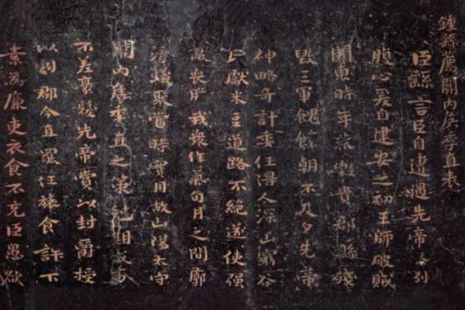 鍾繇薦關內侯季直表
臣繇言臣自遭遇先帝忝列
腹心爰自建安之初王師破賊
關東時年荒穀貴郡縣殘
毀三軍餽饟朝不及夕先帝
神略奇計委任得人深山窮谷
民獻米豆道路不絕遂使強
敵喪膽我眾作氣旬月之間廓
清蟻聚當時實用故山陽太守
關內侯季直之策尅期成事
不差豪髮先帝賞以封爵授
以劇郡今直罷任旅食許下
素為廉吏衣食不充臣愚欲